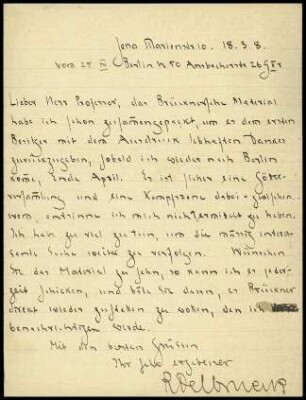 Jena Marienstr. 10. 18. 3. 8.
vom 25 IV Berlin W 50 Ansbacherstr. 26
Lieber Herr Professor, das Brücknersche Material
habe ich schon zusammengepackt, um es dem ersten
Besitzer mit dem Ausdruck lebhaften Dankes
zurückzugeben, sobald ich wieder nach Berlin
kome, Ende April. Es ist sicher eine Götter-
versamlung und eine Kampfszene dabei
mich nicht zu haben.
Ich habe zu viel zu tun, um die mässig interes-
sante Sache weiter zu verfolgen. Wünschen
Sie das Material zu sehn, so kann ich es jeder-
zeit schicken, und bitte Sie dann, es Brückner
direkt wieder zustellen zu wollen, den ich
benachrichtigen werde.
Mit den besten Grüssen
Ihr sehr ergebener
R Delbrueck